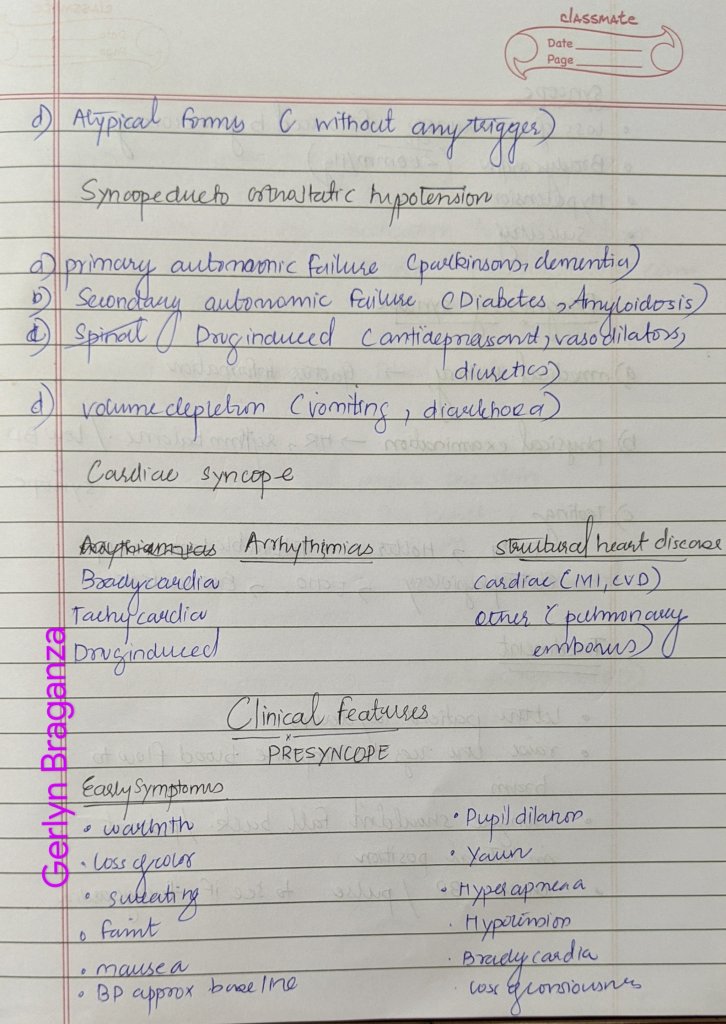 classmate
Date
Page
d) Atypical forms ( without any trigger)
Syncope due to orthostatic hypotension
a) primary autonomic failure (parkinsons, dementia)
b) Secondary autonomic failure (Diabetes, Amyloidosis)
c) Spinal Drug induced (antidepressand, vasodilators,
diuretics)
d) volume depletion (vomiting, diarrhoea)
Cardiac syncope
Arrhythmias structural heart disease
Bradycardia cardiac (MI, CVD)
Tachycardia other (pulmonary
Drug induced embolus)
Clinical features
x
PRESYNCOPE
Early symptoms
• warmth
• loss of color
• sweating
• faint
• nausea
• BP approx baseline
• Pupil dilation
• Yawn
• Hyperapnea
• Hypotension
• Bradycardia
• loss of consiousness
Gerlyn Braganza